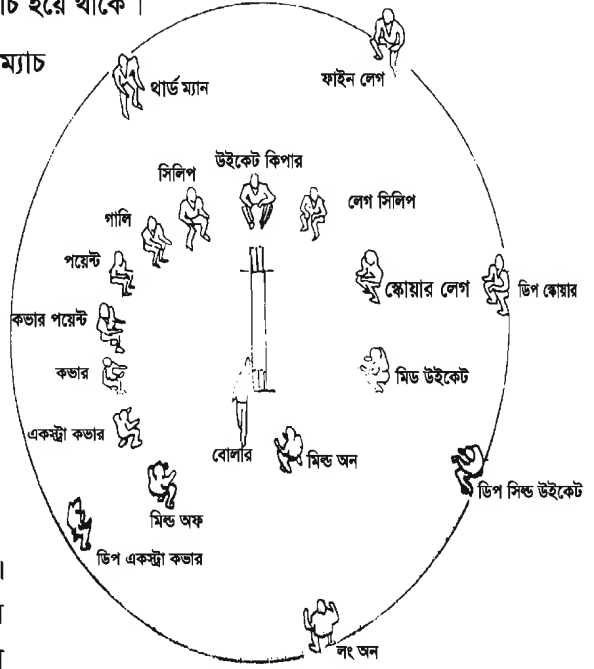 চ হয়ে থাকে।
ম্যাচ
ফাইন লেগ
থার্ড ম্যান
উইকেট কিপার
সিলিপ
লেগ সিলিপ
গালি
পয়েন্ট
স্কোয়ার লেগ
ডিপ স্কোয়ার
কভার পয়েন্ট
কভার
মিড উইকেট
একস্ট্রা কভার
বোলার
মিল্ড অন
ডিপ সিল্ড উইকেট
মিল্ড অফ
ডিপ একস্ট্রা কভার
লং অন